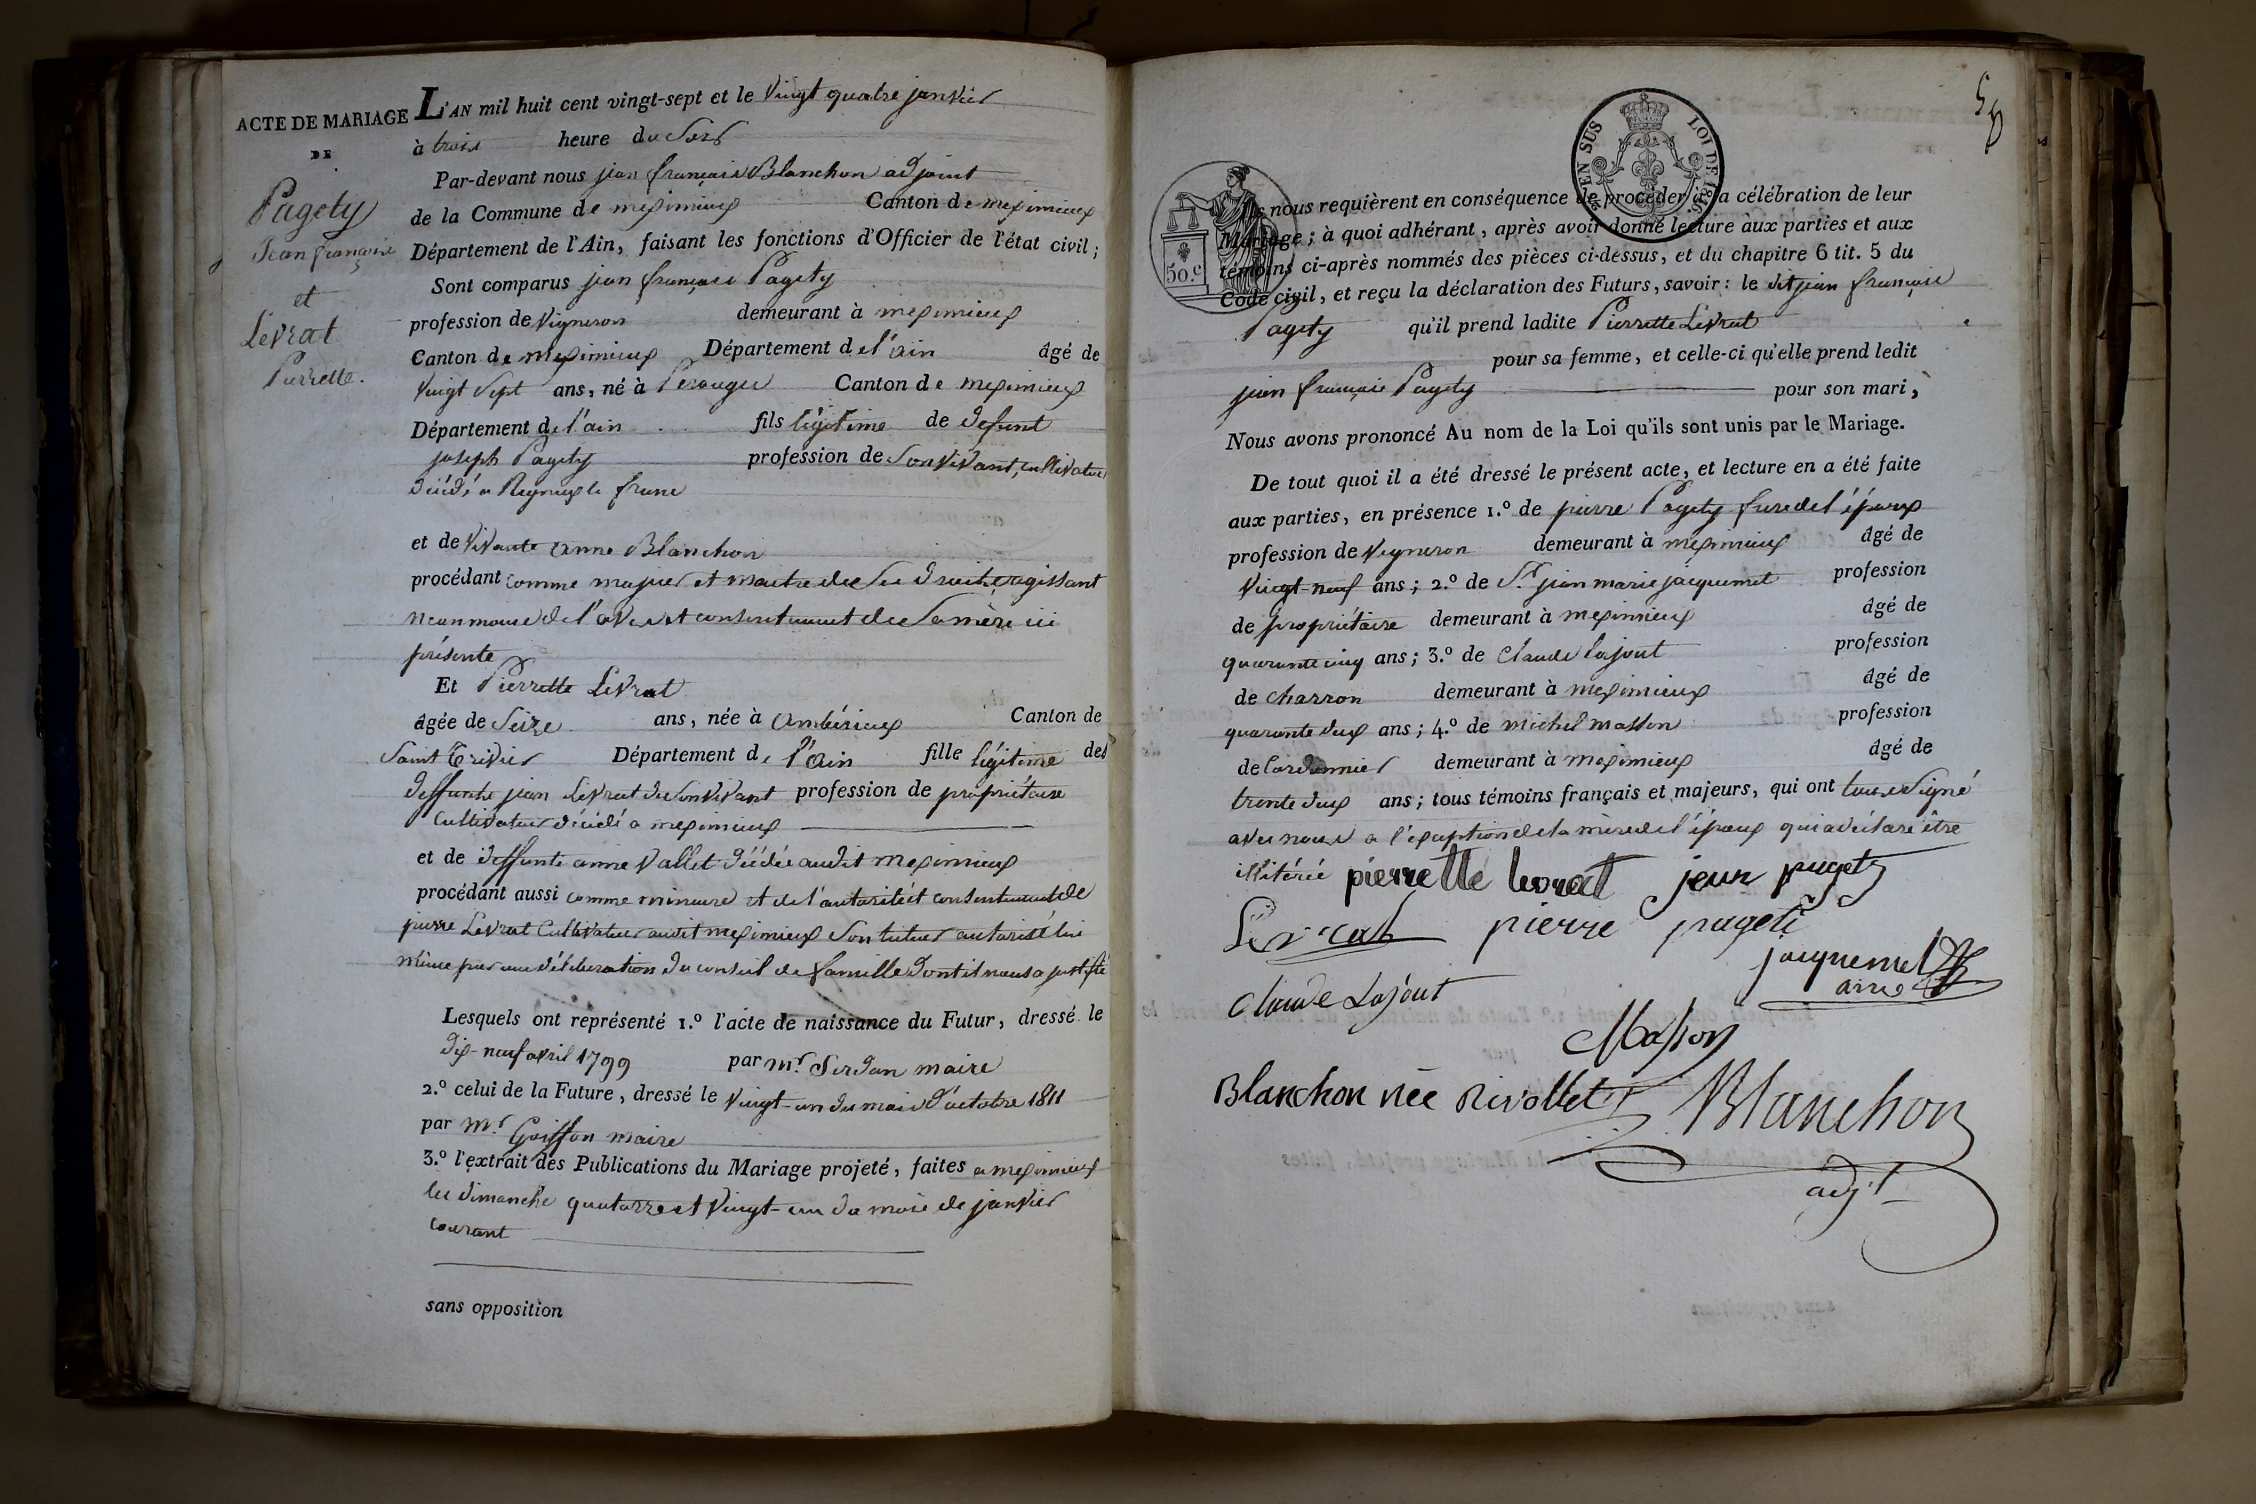 ACTE DE MARIAGE
DE
Pagety
Jean françois
et
Levrat
Pierrette.
L'AN mil huit cent vingt-sept et le vingt quatre janvier
à trois heure du soir
Par-devant nous jean françois Blanchon adjoint
de la Commune de meximieux Canton de meximieux
Département de l'Ain, faisant les fonctions d'Officier de l'état civil;
Sont comparus jean françois Pagety
profession de vigneron demeurant à meximieux
Canton de meximieux Département de l'ain âgé de
vingt sept ans, né à Perouges Canton de meximieux
Département de l'ain fils légitime de defunt
joseph Pagety profession de son vivant, cultivateur
décédé a Rigneux le franc
et de vivante anne Blanchon
procédant comme majeur et maitre de ses droits, agissant
neanmoins de l'avis et consentement de sa mère ici
présente
Et Pierrette Levrat
âgée de seize ans, née à Ambérieux Canton de
Saint Trivier Département de l'Ain fille légitime des
deffunts jean Levrat de son vivant profession de propriétaire
cultivateur décédé a meximieux
et de deffunte anne Vallet décédée audit meximieux
procédant aussi comme mineure et de l'autorité et consentement de
pierre Levrat cultivateur audit meximieux son tuteur autorisé lui
même par une déliberation du conseil de famille dont il nous a justifié
Lesquels ont représenté 1.º l'acte de naissance du Futur, dressé le
dix-neuf avril 1799 par mr. Serdan maire
2.º celui de la Future, dressé le vingt-un du mois d'octobre 1811
par mr. Goiffon maire
3.º l'extrait des Publications du Mariage projeté, faites a meximieux
les dimanche quatorze et vingt-un du mois de janvier
courant
sans opposition
50
EN SUS LOI DE 1816.
50.c
Ils nous requièrent en conséquence de procéder à la célébration de leur
Mariage; à quoi adhérant, après avoir donné lecture aux parties et aux
témoins ci-après nommés des pièces ci-dessus, et du chapitre 6 tit. 5 du
Code civil, et reçu la déclaration des Futurs, savoir: le dit jean françois
Pagety qu'il prend ladite Pierrette Levrat
pour sa femme, et celle-ci qu'elle prend ledit
jean françois Pagety pour son mari,
Nous avons prononcé Au nom de la Loi qu'ils sont unis par le Mariage.
De tout quoi il a été dressé le présent acte, et lecture en a été faite
aux parties, en présence 1.º de pierre Pagety frere de l'époux
profession de vigneron demeurant à meximieux âgé de
vingt-neuf ans; 2.º de Sr. jean marie jacquemet profession
de propriétaire demeurant à meximieux âgé de
quarante cinq ans; 3.º de claude Lajout profession
de charron demeurant à meximieux âgé de
quarante deux ans; 4.º de michel masson profession
de Cordonnier demeurant à meximieux âgé de
trente deux ans; tous témoins français et majeurs, qui ont tous signé
avec nous a l'exception de la mère de l'époux qui a déclaré être
illitérée pierrette levrat jean pagety
Levrat pierre pageti
jacquemet
ainé
claude Lajout
Masson
Blanchon née Rivollet Blanchon
adj.t